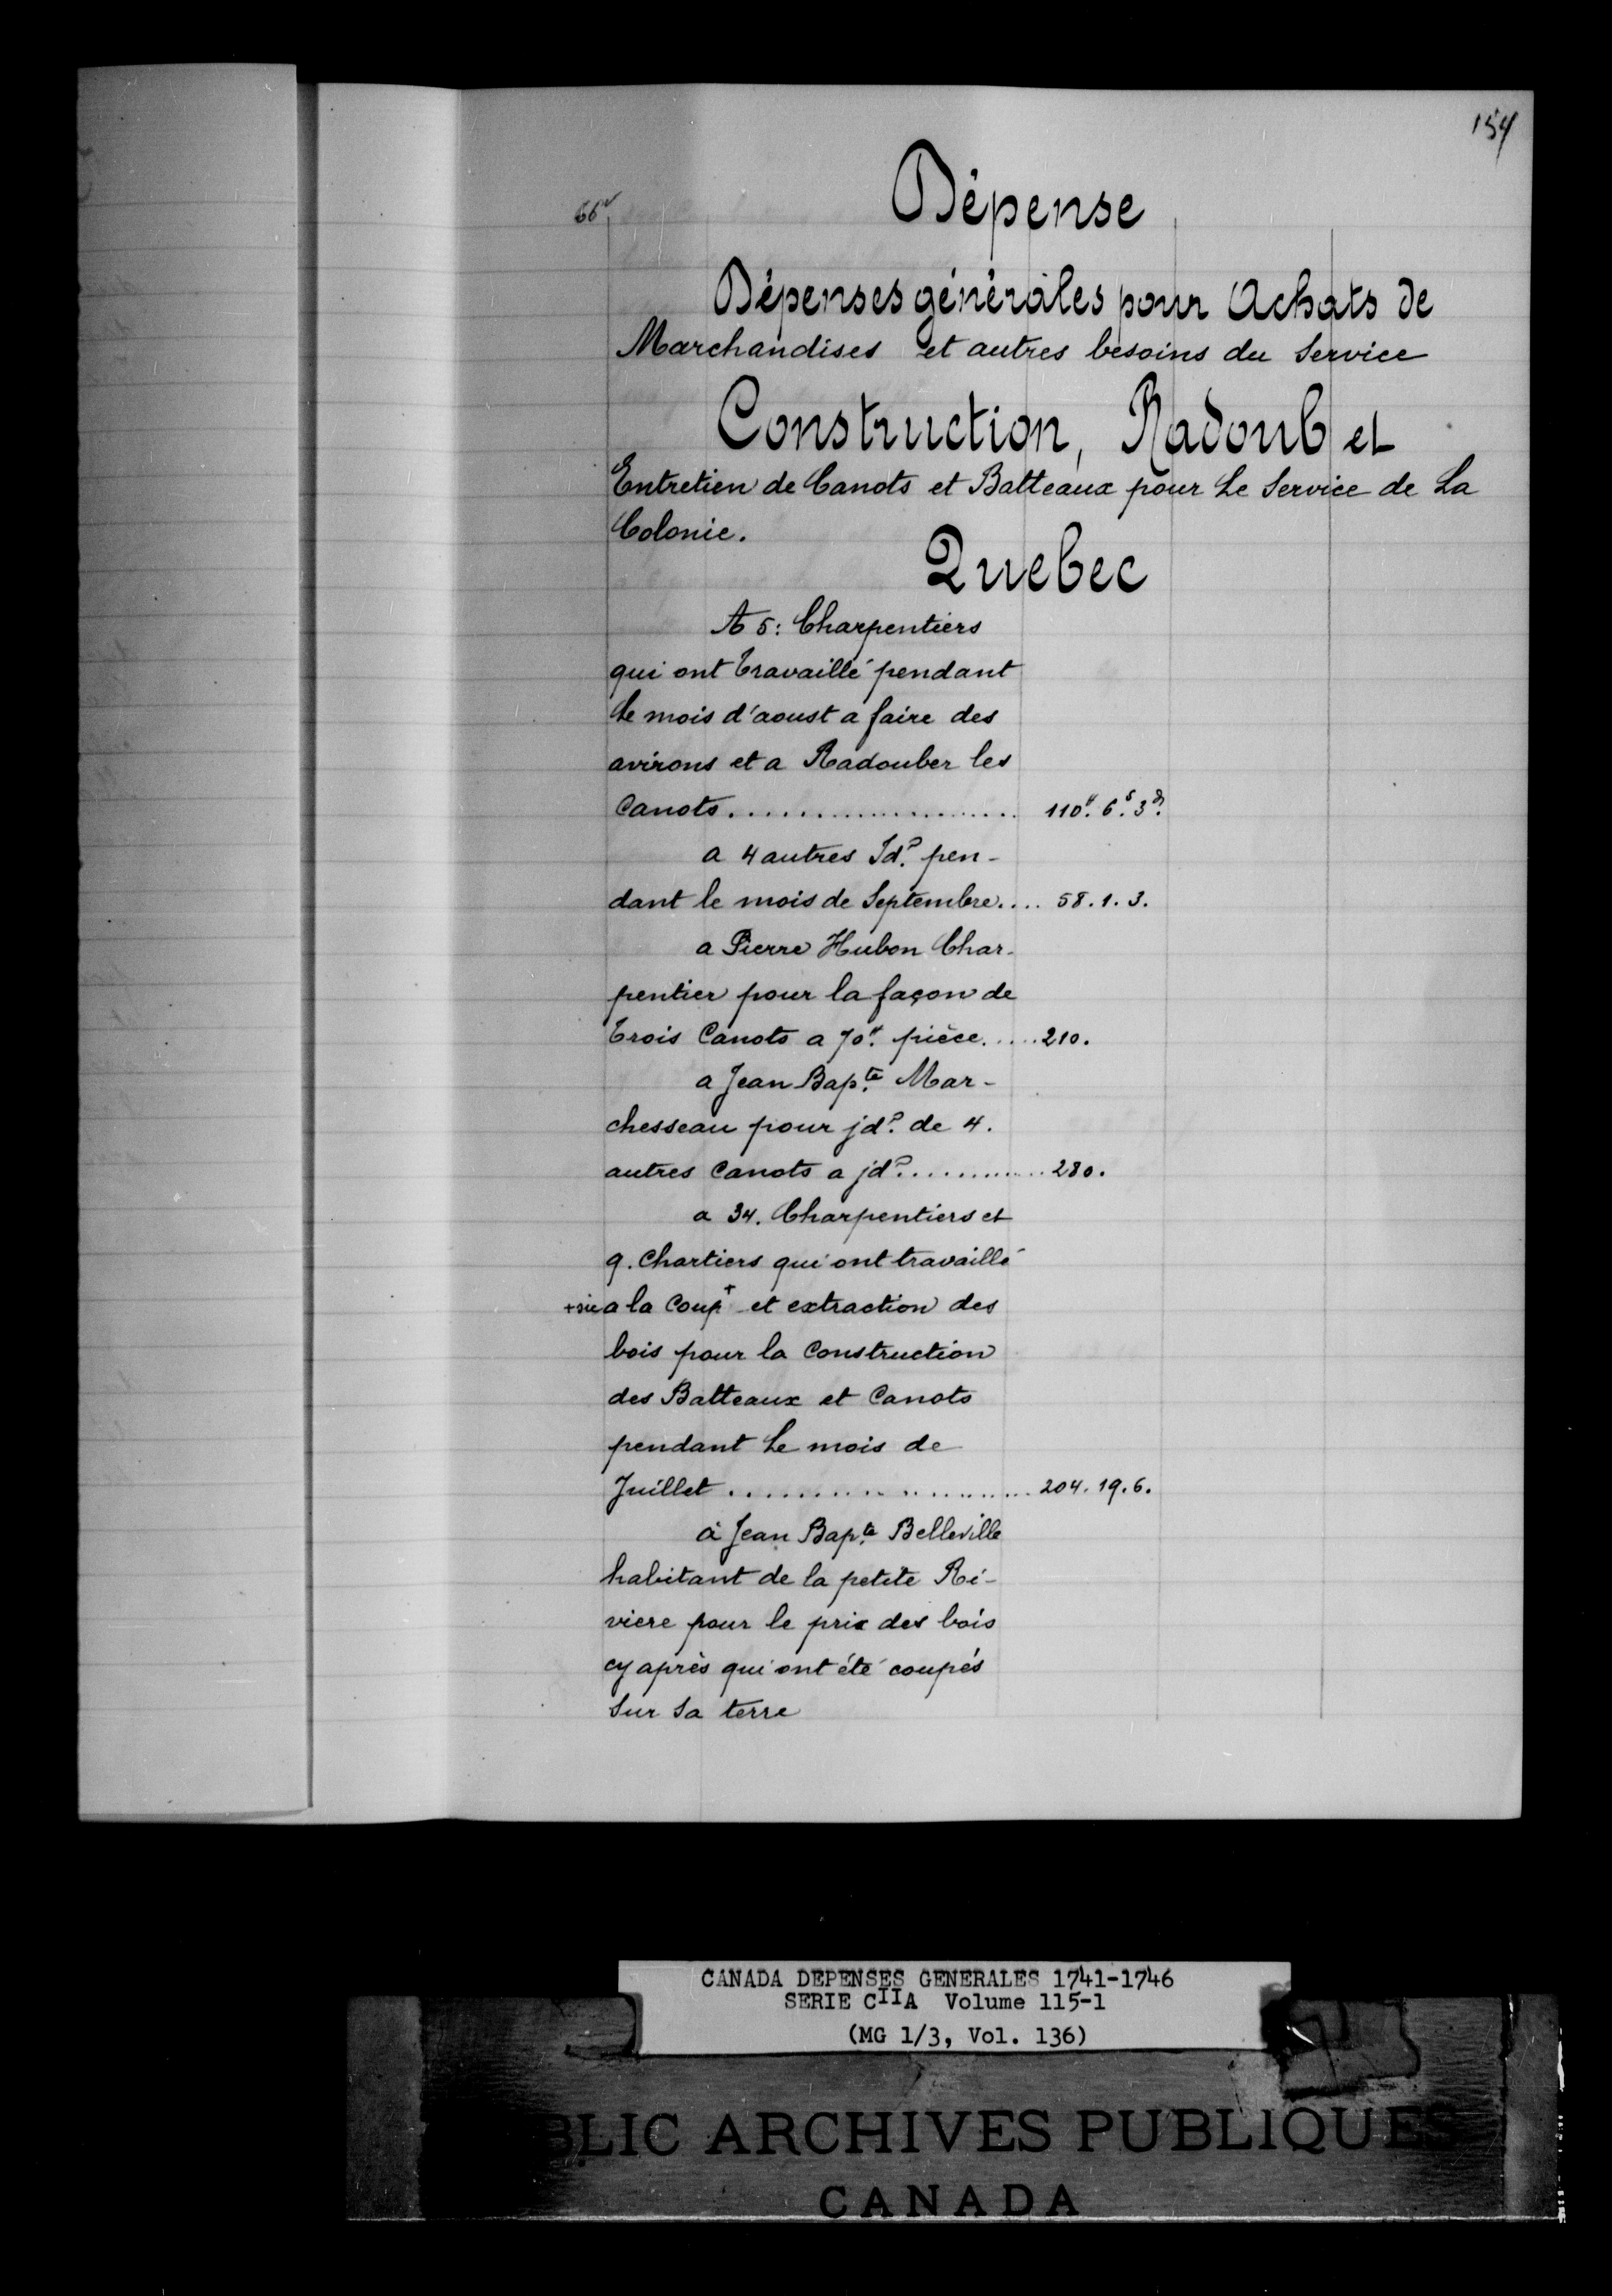 154
66v
Dépense
Dépenses générales pour Achats de
Marchandises et autres besoins du Service
Construction, Radoub et
Entretien de Canots et Batteaux pour Le Service de La
Colonie.
Quebec
A 5: Charpentiers
qui ont travaillé pendant
Le mois d'aoust a faire des
avirons et a Radouber les
Canots..................... 110ᵗᵗ. 6ˢ. 3ᵈ.
a 4 autres Jd.º pen-
dant le mois de Septembre.... 58.1.3.
a Pierre Hubon Char-
pentier pour la façon de
trois Canots a 70ᵗᵗ. pièce.....210.
a Jean Bap.te Mar-
chesseau pour jd.º de 4.
autres Canots a jd.º............280.
a 34. Charpentiers et
9. Chartiers qui ont travaillé
+sic a la Coup+ et extraction des
bois pour la Construction
des Batteaux et Canots
pendant Le mois de
Juillet......................204.19.6.
à Jean Bap.te Belleville
habitant de la petite Ri-
viere pour le prix des bois
cy après qui ont été coupés
Sur Sa terre
CANADA DEPENSES GENERALES 1741-1746
SERIE CIIA Volume 115-1
(MG 1/3, Vol. 136)
BLIC ARCHIVES PUBLIQUES
CANADA